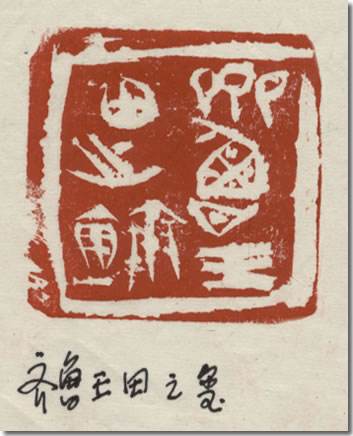 齊魯王
田之鉨
齐魯王田之玺